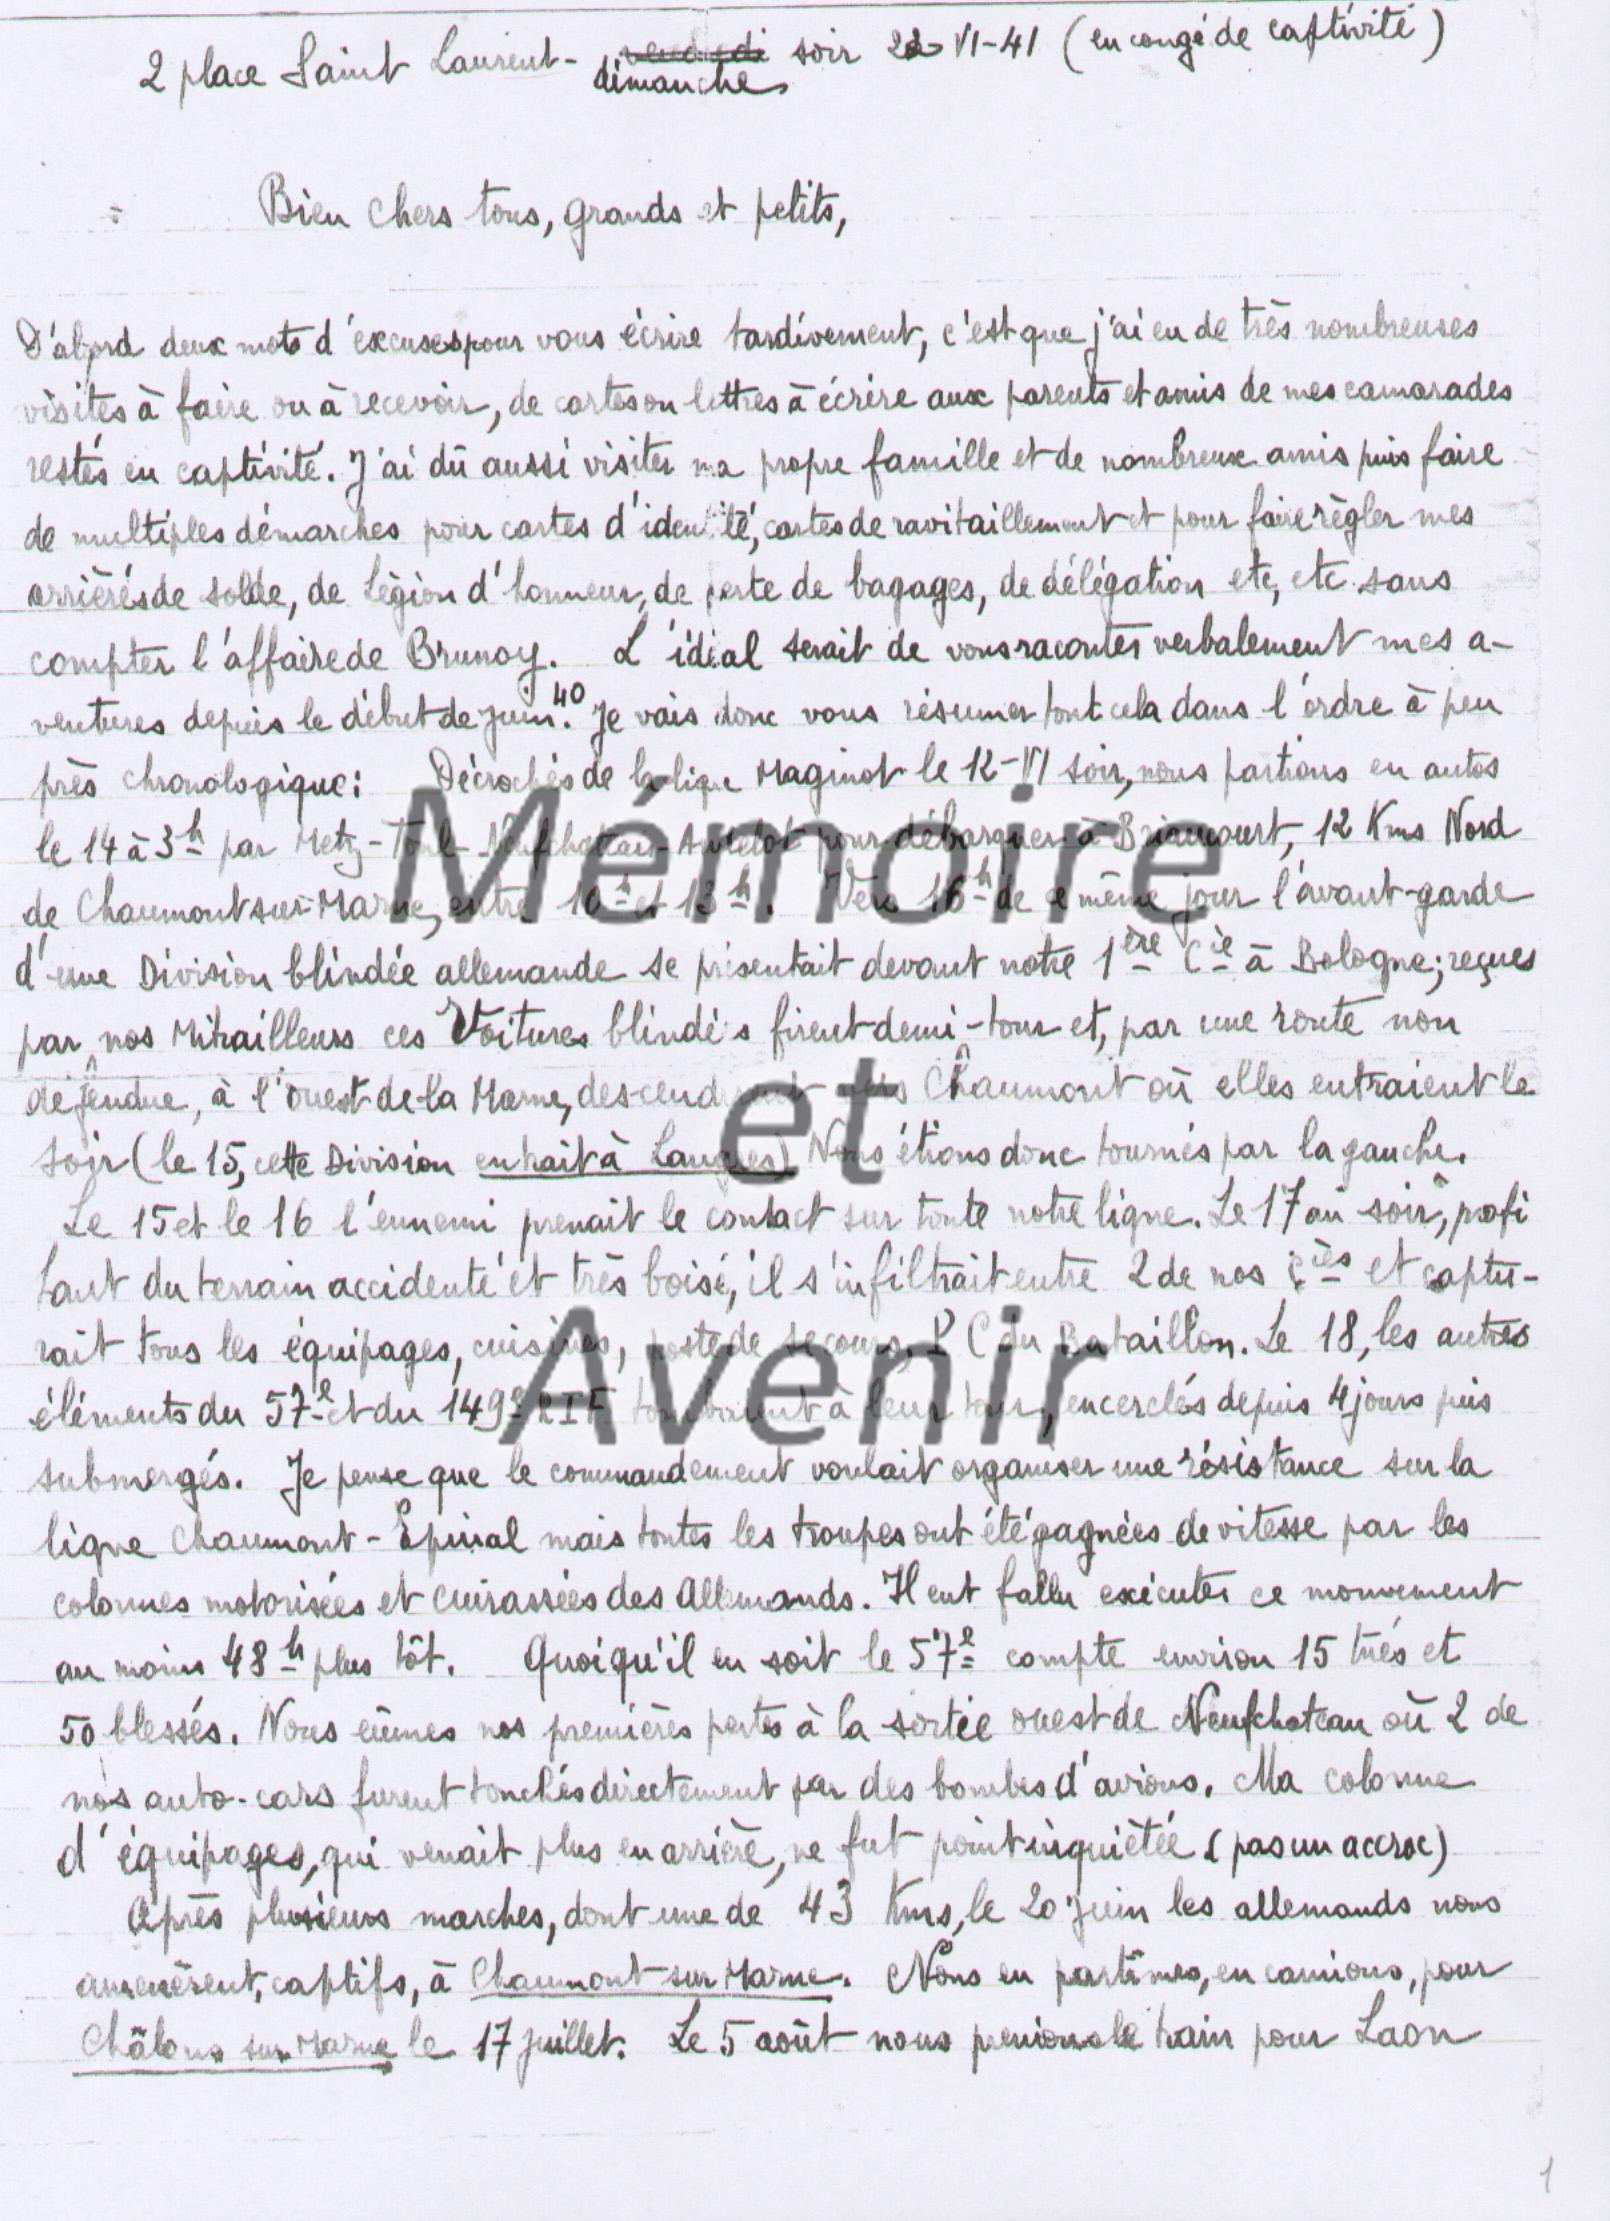 2 place Saint Laurent - vendredi soir 22 VI-41 (en congé de captivité)
dimanche
Bien chers tous, grands et petits,
D'abord deux mots d'excuses pour vous écrire tardivement, c'est que j'ai eu de très nombreuses
visites à faire ou à recevoir, de cartes ou lettres à écrire aux parents et amis de mes camarades
restés en captivité. J'ai dû aussi visiter ma propre famille et de nombreux amis puis faire
de multiples démarches pour cartes d'identité, cartes de ravitaillement et pour faire règler mes
arrièrés de solde, de Légion d'honneur, de perte de bagages, de délégation etc, etc sans
compter l'affaire de Brunoy. L'idéal serait de vous raconter verbalement mes a-
ventures depuis le début de juin 40. Je vais donc vous résumer tout cela dans l'ordre à peu
près chronologique: Décrochés de la ligne Maginot le 12-VI soir, nous partions en autos
le 14 à 3h par Metz - Toul - Neufchateau - Andelot pour débarquer à Briaucourt, 12 Kms Nord
de Chaumont sur-Marne, entre 10h et 13h. Vers 16h de ce même jour l'avant-garde
d'une Division blindée allemande se présentait devant notre 1ère Cie à Bologne; reçues
par nos Mitrailleurs ces Voitures blindés firent demi-tour et, par une route non
défendue, à l'ouest de la Marne, descendirent vers Chaumont où elles entraient le
soir (le 15, cette Division entrait à Langres) Nous étions donc tournés par la gauche.
Le 15 et le 16 l'ennemi prenait le contact sur toute notre ligne. Le 17 au soir, profi
tant du terrain accidenté et très boisé, il s'infiltrait entre 2 de nos Cies et captu-
rait tous les équipages, cuisines, poste de secours, P C du Bataillon. Le 18, les autres
éléments du 57e et du 149e RIF tombaient à leur tour, encerclés depuis 4 jours puis
submergés. Je pense que le commandement voulait organiser une résistance sur la
ligne Chaumont - Epinal mais toutes les troupes ont été gagnées de vitesse par les
colonnes motorisées et cuirassées des Allemands. Il eut fallu exécuter ce mouvement
au moins 48h plus tôt. Quoiqu'il en soit le 57e compte environ 15 tués et
50 blessés. Nous eûmes nos premières pertes à la sortie ouest de Neufchateau où 2 de
nos auto-cars furent touchés directement par des bombes d'avions. Ma colonne
d'équipages, qui venait plus en arrière, ne fut point inquiètée (pas un accroc)
Après plusieurs marches, dont une de 43 Kms, le 20 juin les allemands nous
amenèrent, captifs, à Chaumont-sur-Marne. Nous en partîmes, en camions, pour
Châlons sur Marne le 17 juillet. Le 5 août nous prenions le train pour Laon
1
Mémoire
et
Avenir